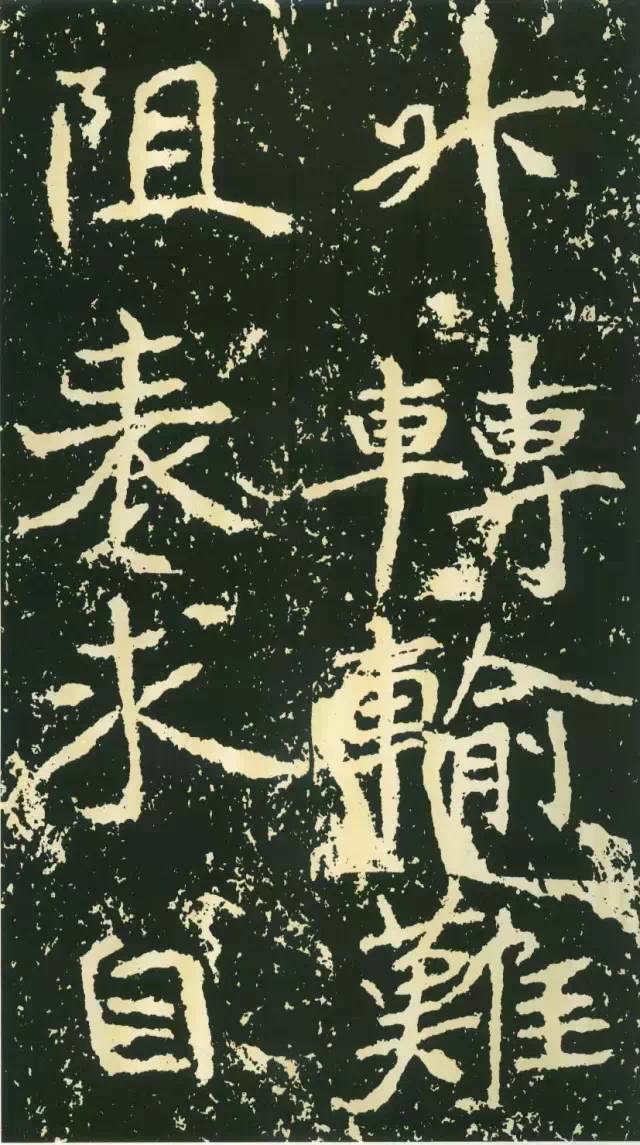 升轉輸難
阻表求自